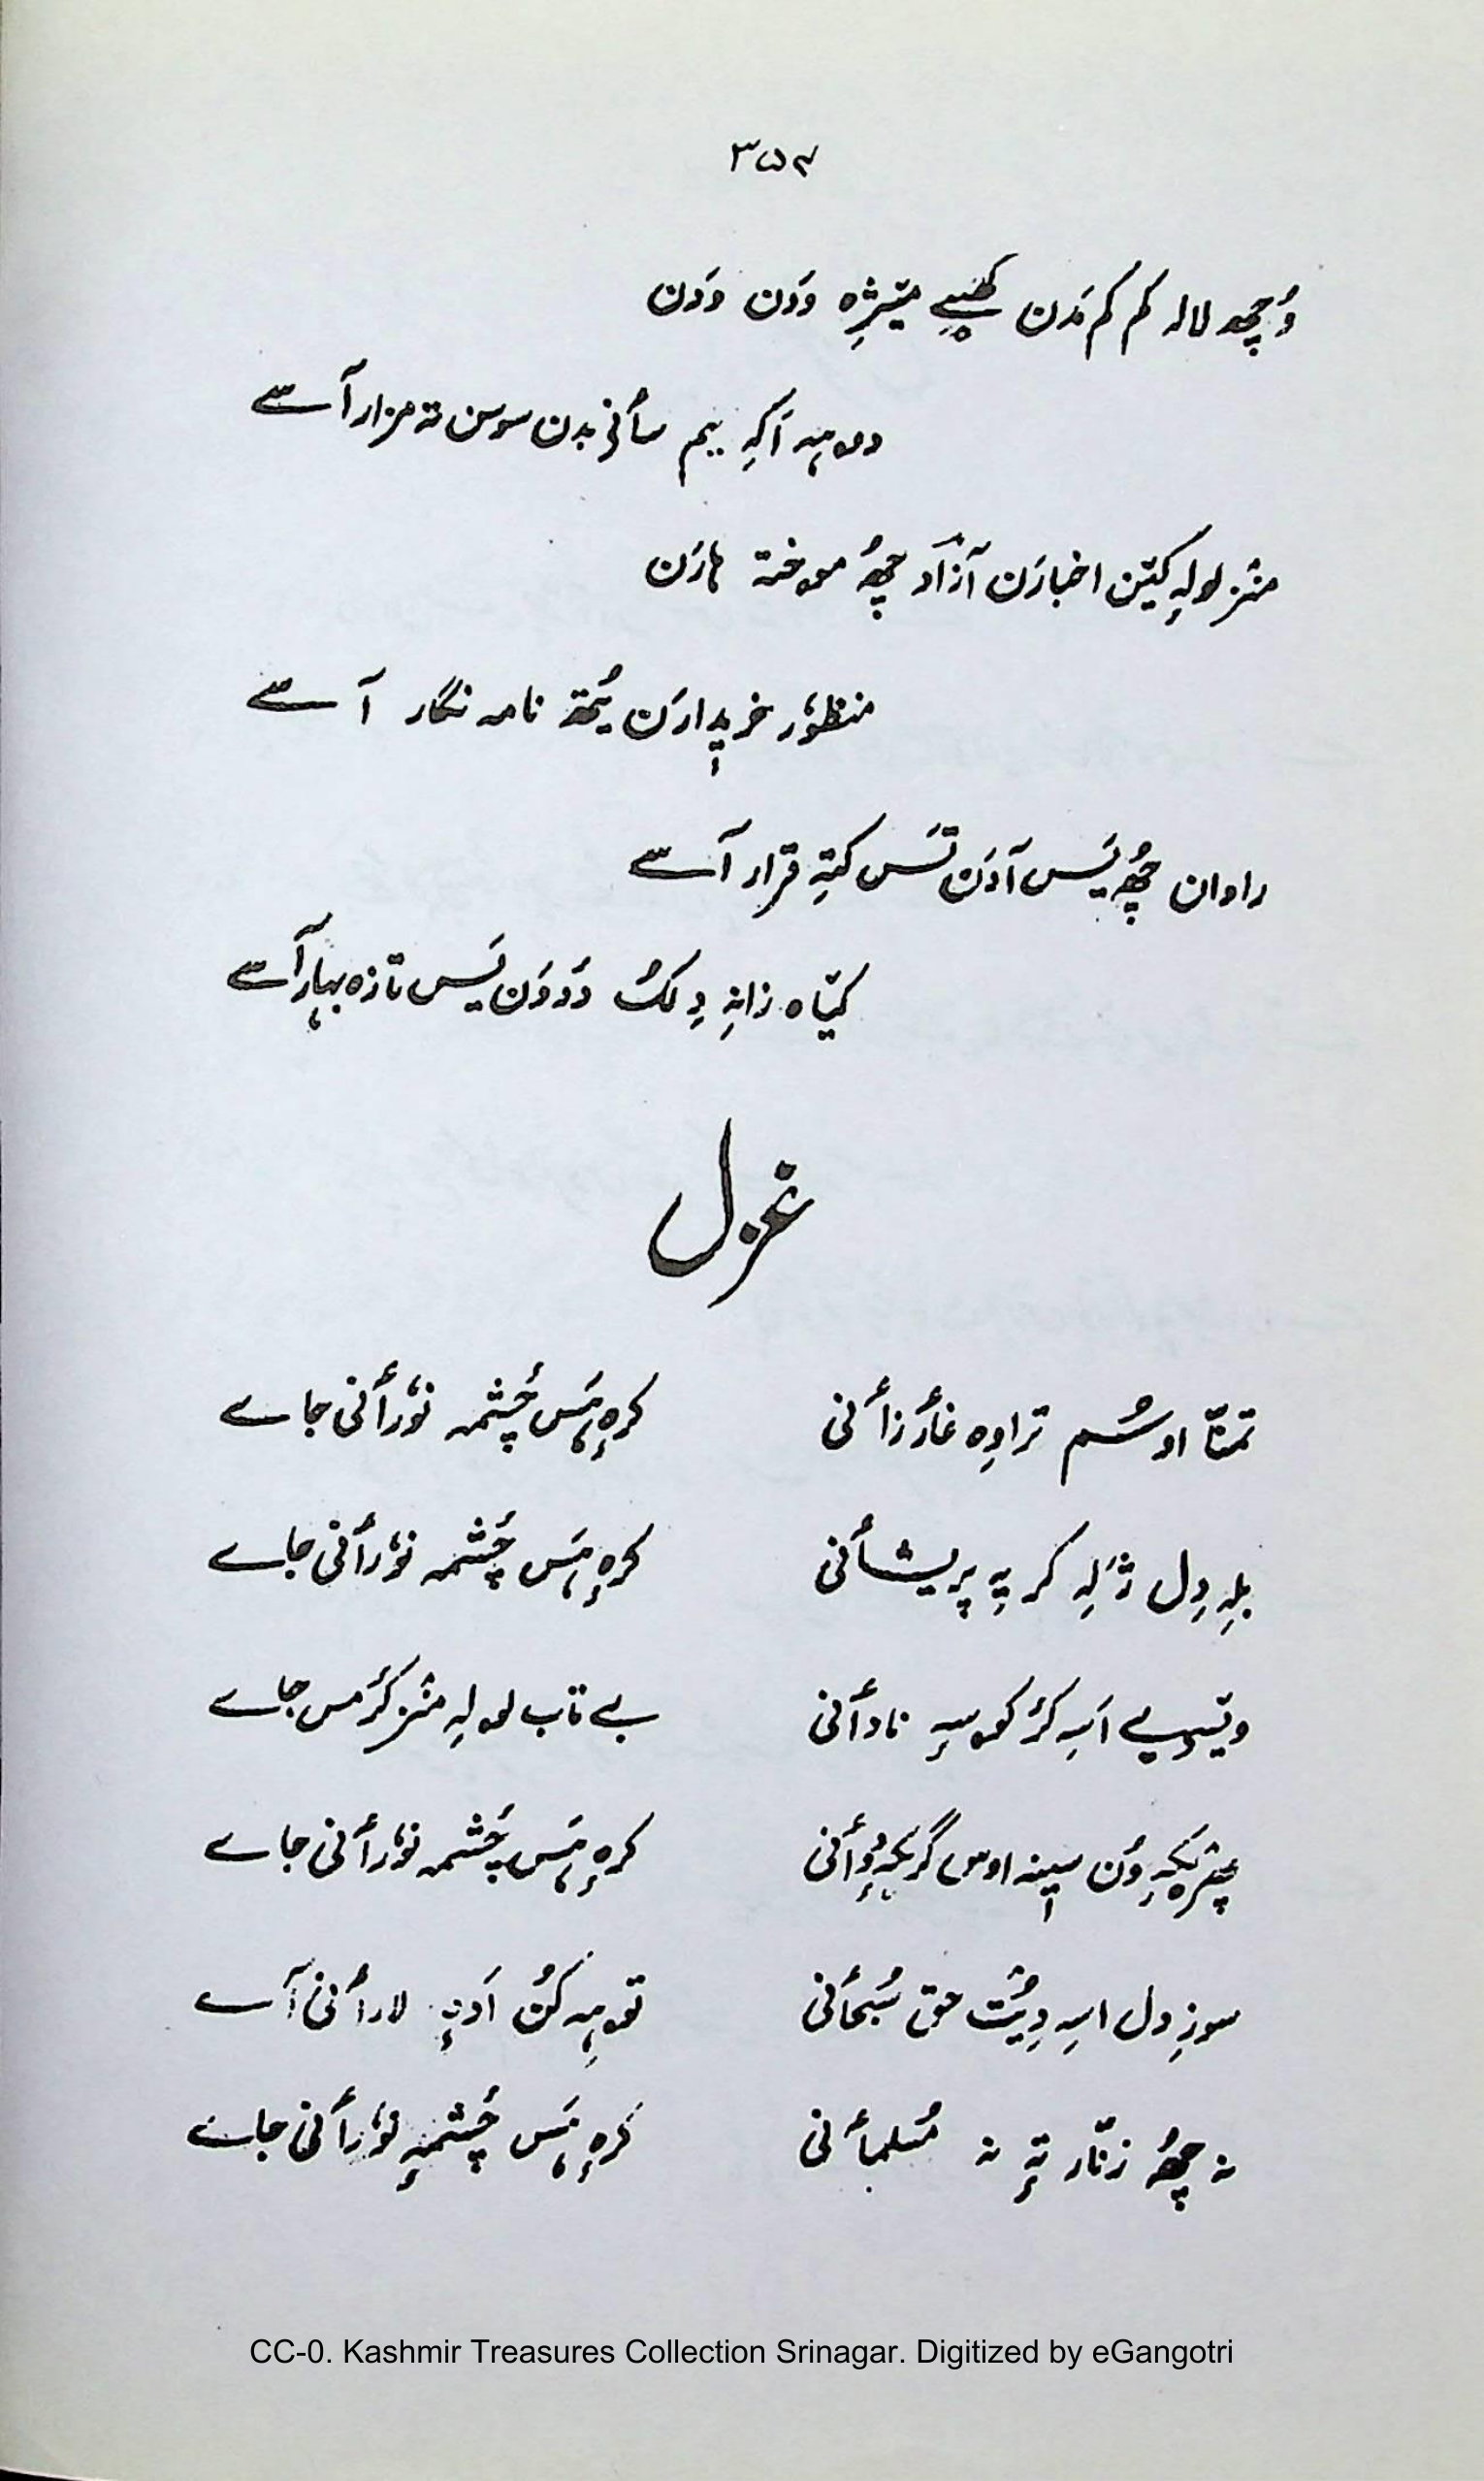 ۳۵۴
وُچھ لالہ کم کم مَدن کھیٚیہِ میٚژِہ وَدَن وَدَن
دوہہ اَکہِ یم سأنی بدن سوسن تہ مزار آسے
منٛز لولہٕ کیٚن اخبارَن آزاد چھُ موختہ ہارَن
منظوٗر خریٖدارَن یُتھ نامہ نگار آسے
راوان چھُ یَس آدَن تَس کتہِ قرار آسے
کیٚاہ زانہِ دِلکُ دَدوَن یَس تازہ بہار آسے
غزل
تمنّا اوسُم تراوِہ غأر زأنی
کرہٕ ہَس چٔشمہ نوٗرأنی جاے
بلہِ دِل ژَلہِ کر یہِ پریشأنی
کرہٕ ہَس چٔشمہ نوٗرأنی جاے
ویٚسیے اَسہِ کٔر کوسہٕ نادأنی
بے تاب لولہٕ منٛز کٔرمس جاے
وُن سیٖنہ اوس
کرہٕ ہَس چٔشمہ نوٗرأنی جاے
سوزِ دل اسہِ دِیُت حق سُبحأنی
توہہِ کُن اَدہٕ لارأنی آے
نہ چھُ زنّار تہٕ نہ مُسلمأنی
کرہٕ ہَس چٔشمہٕ نوٗرأنی جاے
CC-0. Kashmir Treasures Collection Srinagar. Digitized by eGangotri